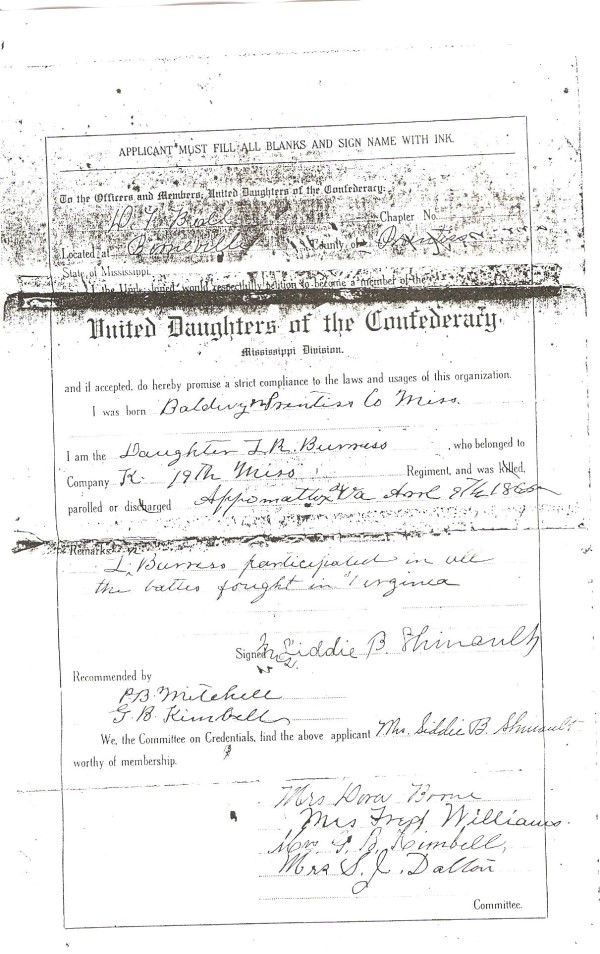 APPLICANT MUST FILL ALL BLANKS AND SIGN NAME WITH INK.
To the Officers and Members, United Daughters of the Confederacy:
Chapter No.
Located at Booneville County of Prentiss
State of Mississippi.
would respectfully petition to become a member of the
United Daughters of the Confederacy.
Mississippi Division.
and if accepted, do hereby promise a strict compliance to the laws and usages of this organization.
I was born Baldwyn Prentiss Co Miss.
I am the Daughter I. R. Burress , who belonged to
Company K. 19th Miss Regiment, and was killed,
parolled or discharged Appomattox Va 9th 1865
Remarks
Burress participated in all
the battles fought in Virginia
Signed Mrs Siddie B. Shinault
Recommended by
P.B. Mitchell
G. B. Kimbell
We, the Committee on Credentials, find the above applicant Mrs. Siddie B. Shinault
worthy of membership.
Mrs Dora Boone
Mrs Fred Williams.
Mrs G. B. Kimbell,
Mrs S. J. Dalton
Committee.